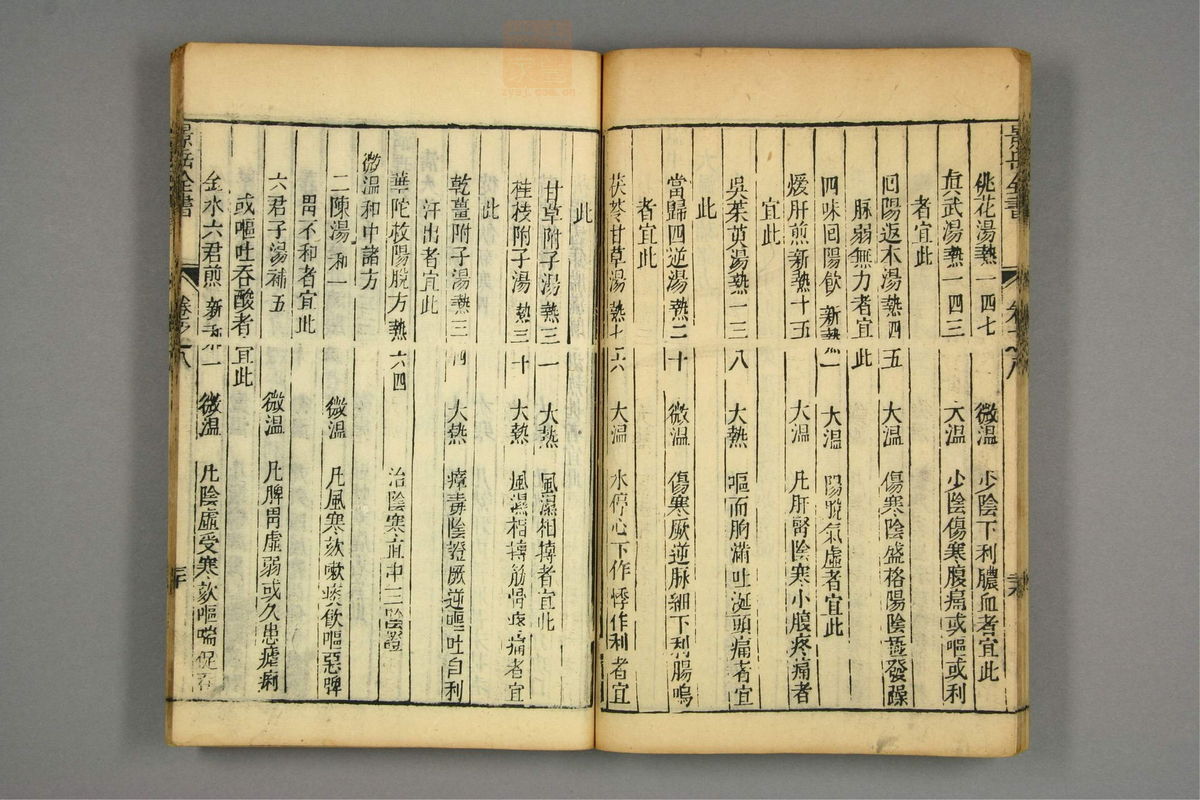 景岳全書
桃花湯熱一四七 微温 少陰下利膿血者宜此
真武湯熱一四三 大温 少陰傷寒腹痛或嘔或利
者宜此
回陽返本湯熱四五 大温 傷寒陰盛格陽陰極發躁
脉弱無力者宜此
四味回陽飲新熱二 大温 陽脱氣虛者宜此
煖肝煎新熱十五 大温 凡肝腎陰寒小腹疼痛者
宜此
吳茱萸湯熱一三八 大熱 嘔而胸滿吐涎頭痛者宜
此
當歸四逆湯熱二十 微温 傷寒厥逆脉細下利腸鳴
者宜此
茯苓甘草湯熱十六 大温 水停心下作悸作利者宜
此
甘草附子湯熱三一 大熱 風濕相摶者宜此
桂枝附子湯熱三十 大熱 風濕相摶筋骨疼痛者宜
此
乾薑附子湯熱三四 大熱 瘴毒陰證厥逆嘔吐自利
汗出者宜此
華陀救陽脱方熱六四 治陰寒直中三陰證
微温和中諸方
二陳湯和一 微温 凡風寒欬嗽痰飲嘔惡脾
胃不和者宜此
六君子湯補五 微温 凡脾胃虛弱或久患瘧痢
或嘔吐吞酸者宜此
金水六君煎新和一 微温 凡陰虛受寒欬嘔喘促
景岳全書 卷之 八